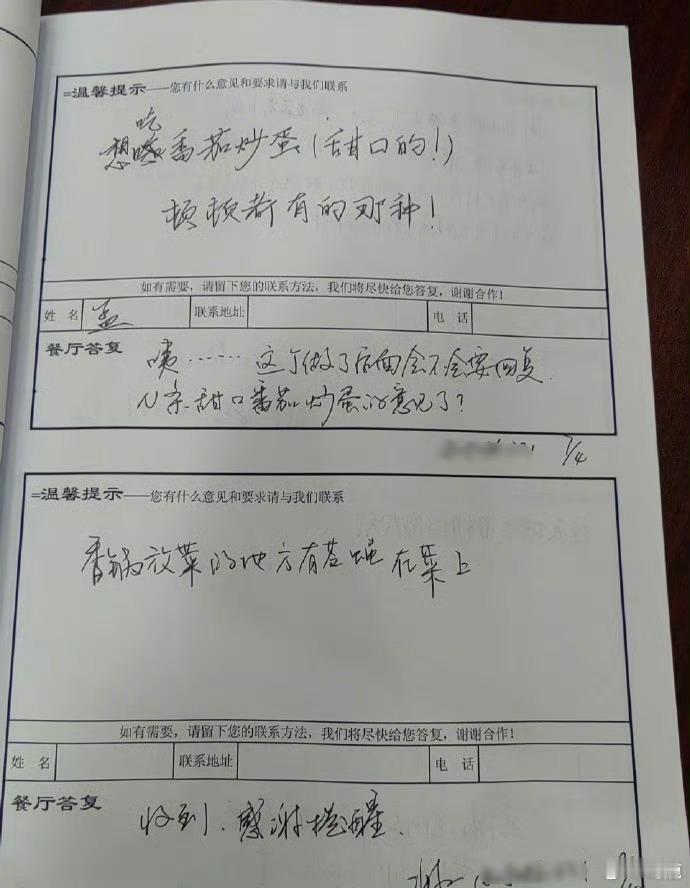 =温馨提示——您有什么意见和要求请与我们联系
吃
想番茄炒蛋(甜口的!)
顿顿都有的那种!
如有需要，请留下您的联系方法，我们将尽快给您答复，谢谢合作!
姓 名 孟 联系地址 电 话
餐厅答复 咦……这个做了后面会不会要回复
N条甜口番茄炒蛋的意见了?
7/4
=温馨提示——您有什么意见和要求请与我们联系
香锅放菜的地方有苍蝇在菜上
如有需要，请留下您的联系方法，我们将尽快给您答复，谢谢合作!
姓 名 联系地址 电 话
餐厅答复 收到.感谢提醒.